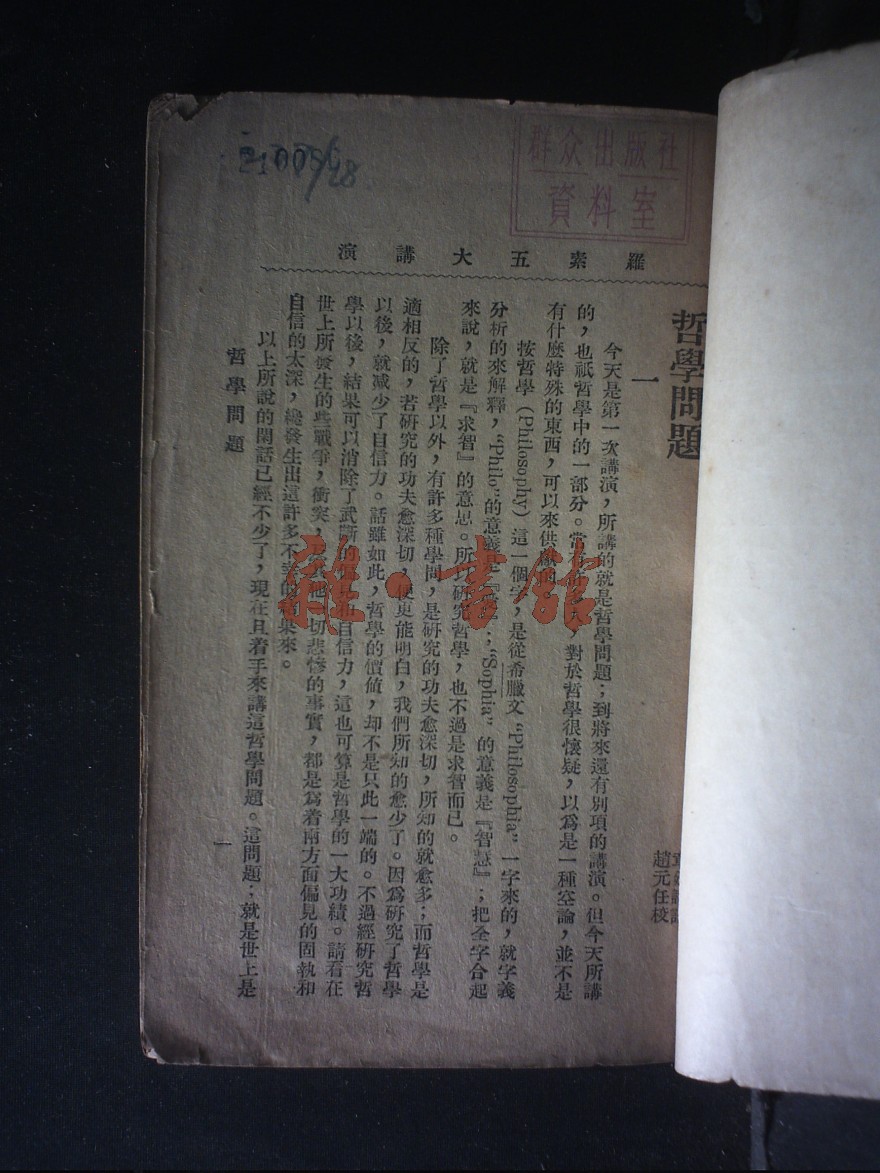 21005/28
群众出版社
資料室
羅素五大講演
哲學問題
趙元任校
一
今天是第一次講演，所講的就是哲學問題；到將來還有別項的講演。但今天所講
的，也祇哲學中的一部分。常 對於哲學很懷疑，以爲是一種空論，並不是
有什麼特殊的東西，可以來供
按哲學（Philosophy）這一個字，是從希臘文“Philosophia”一字來的，就字義
分析的來解釋，“Philo”的意義是 ；“Sophia”的意義是『智慧』；把全字合起
來說，就是『求智』的意思。所以研究哲學，也不過是求智而已。
除了哲學以外，有許多種學問，是研究的功夫愈深切，所知的就愈多；而哲學是
適相反的，若研究的功夫愈深切，便更能明白，我們所知的愈少了。因爲研究了哲學
以後，就減少了自信力。話雖如此，哲學的價値，却不是只此一端的。不過經研究哲
學以後，結果可以消除了武斷的 自信力，這也可算是哲學的一大功績。請看在
世上所發生的些戰爭，衝突， 一切悲慘的事實，都是爲着兩方面偏見的固執和
自信的太深，纔發生出這許多不幸的結果來。
以上所說的閑話已經不少了，現在且着手來講這哲學問題。這問題：就是世上是
哲學問題
一
雜·書館